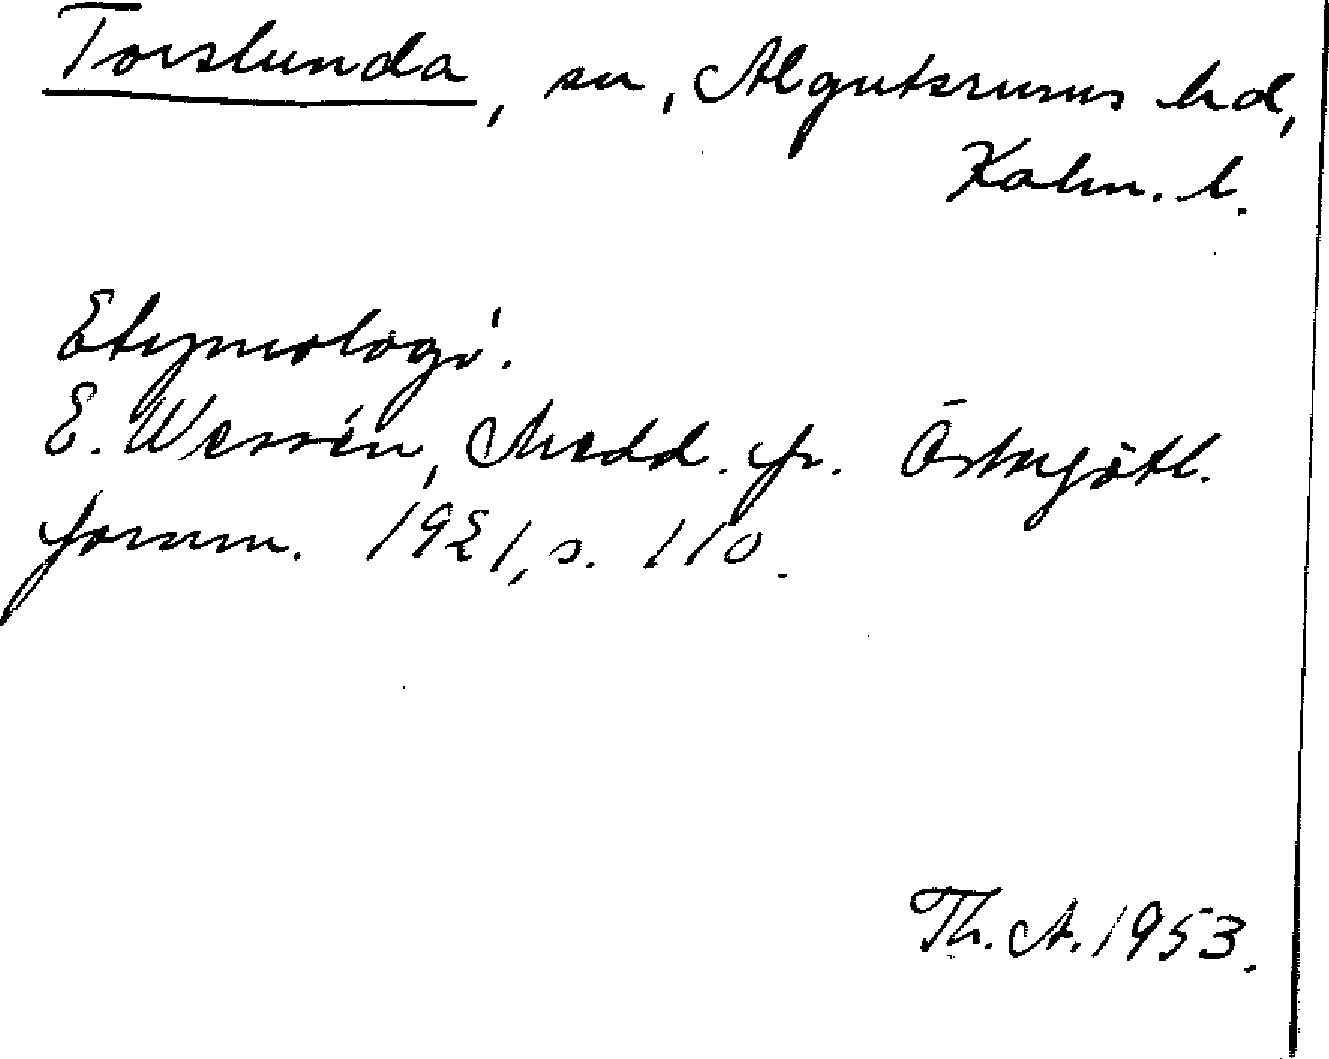 Torslunda, sn, Algutsrums hd,
Kalm. l.
Etymologi.
E. Wessén, Medd. fr. Östergötl.
fornm. 1921, s. 110.
Th. A. 1953.